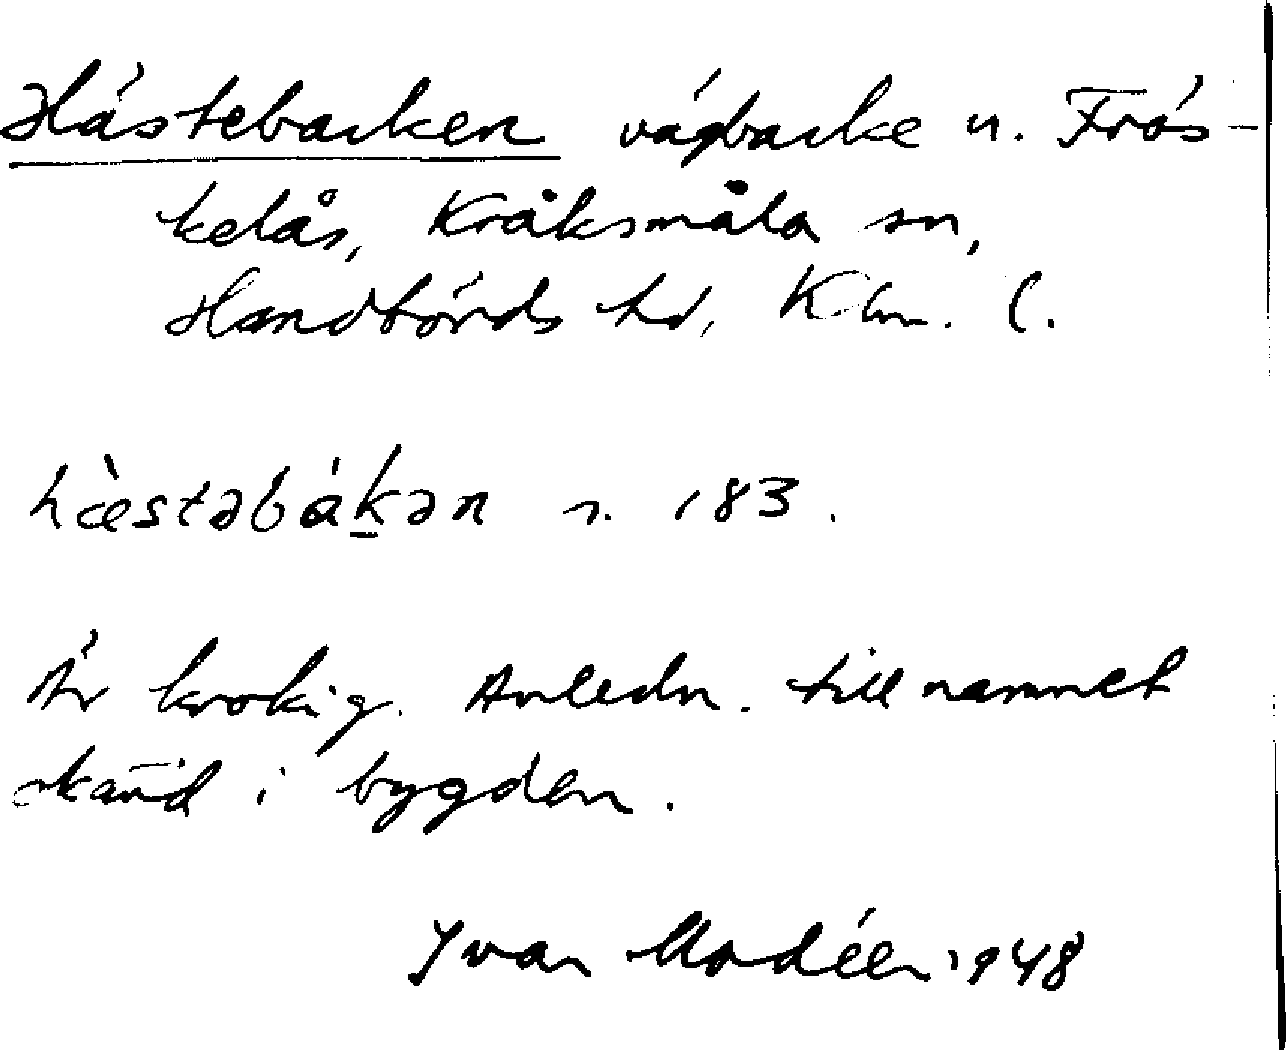 Hästebacken vägbacke n. Frös-
kelås, Kråksmåla sn,
Handbörds hd, Klm. l.
hὲstəbákən s. 183.
Är krokig. Anledn. till namnet
okänd i bygden.
Ivar Modéer 1948